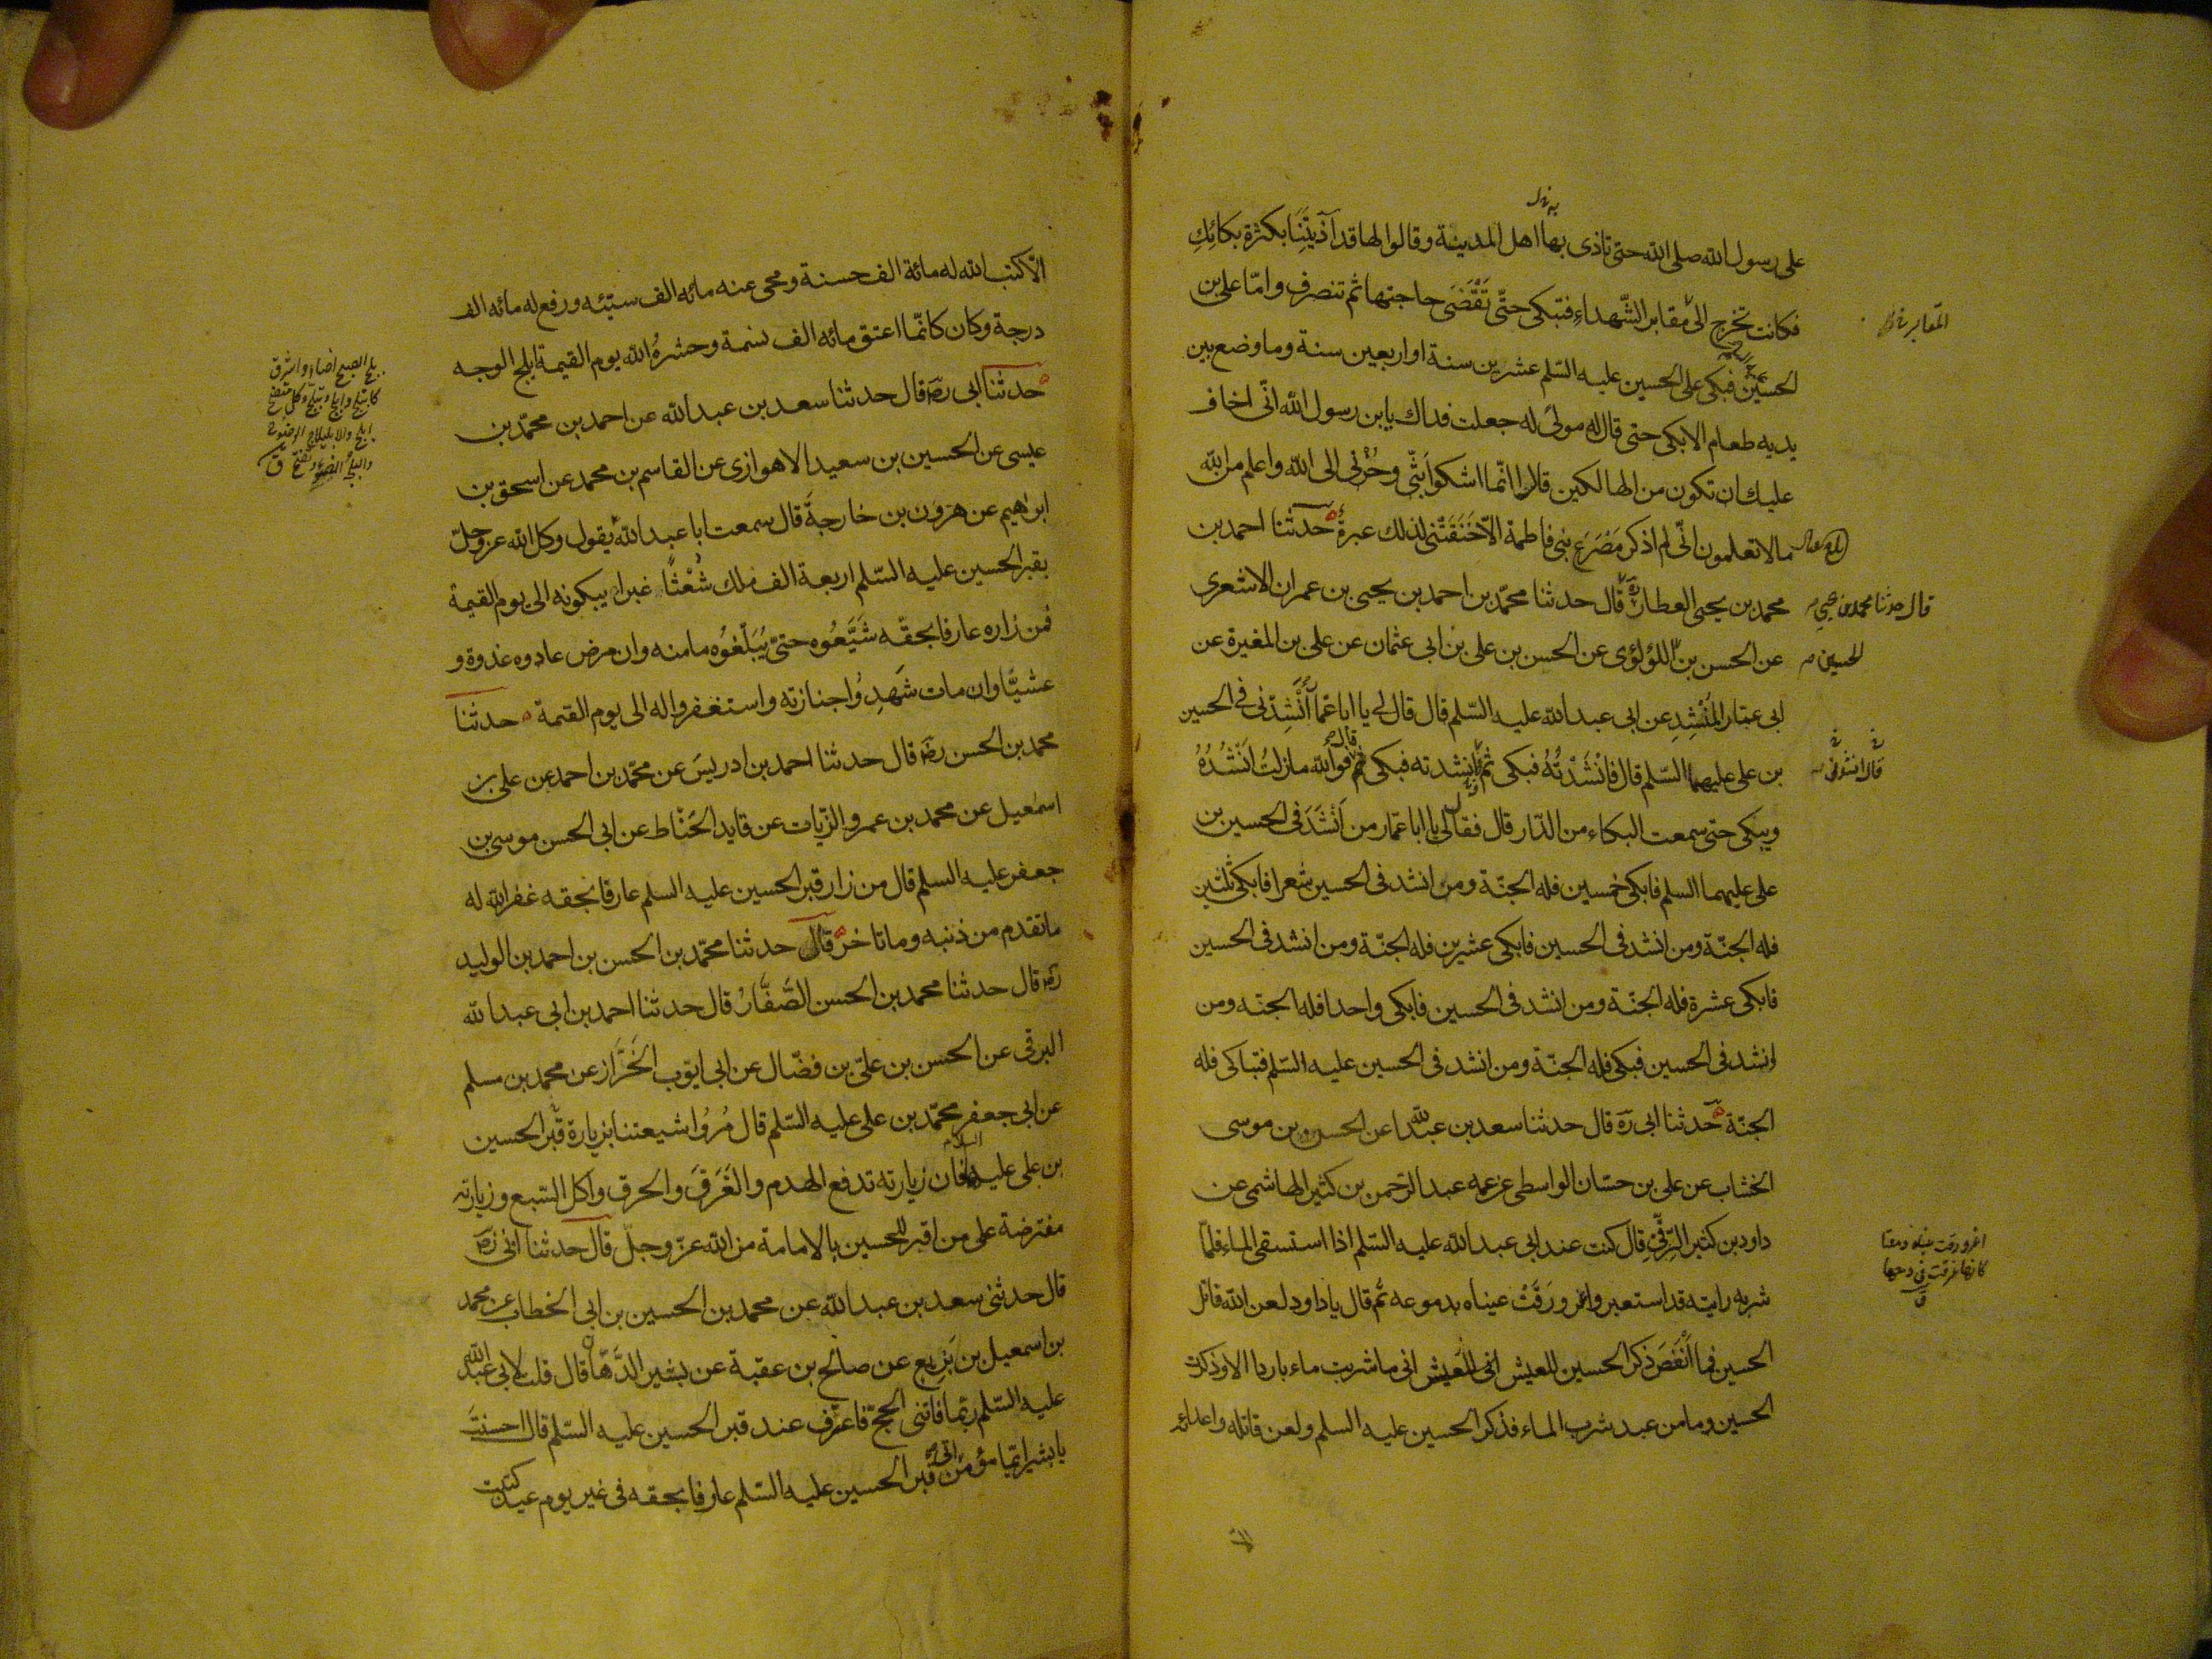 به نزل
على رسول الله صلى الله حتى تاذى بها اهل المدينة وقالوا لها قد آذَيتِنَا بكثرة بكائِكِ
فكانت تخرج الى مقابر الشّهداءِ فتبكى حتّى تَقْضَى حاجتها ثم تنصرف وامّا على بن
المقابر
الحسين فبكى على الحسين عليه السّلم عشرين سنة او اربعين سنة وما وضع بين
يديه طعام الا بكى حتى قال له مولىً له جعلت فداك يا بن رسول الله انّى اخاف
عليك ان تكون من الهالكين قال انّما اشكوا بَثّى وحُزنى الى الله واعلم من الله
مالا تعلمون انّى لم اذكر مَصْرَعِ بنى فاطمة الاّ خَنَقَتْنى لذلك عبرة حدثنا احمد بن
محمد بن يحيى العطار ره قال حدثنا محمّد بن احمد بن يحيى بن عمران الاشعرى
قال حدثنا محمد بن يحيى
عن الحسن بن اللؤلؤى عن الحسن بن على بن ابى عثمان عن على بن المغيرة عن
الحسين
ابى عمّار المُنْشِدِ عن ابى عبد الله عليه السّلم قال قال لے يا ابا عمّار أَنْشِدْنى فى الحسين
بن على عليهما السّلم قال فَانْشَدْتُهُ فبكى ثم انشدته فبكى قال فو الله مازلتُ اَنْشُدُهُ
ويبكى حتى سمعت البكاء من الدّار قال فقال لى يا ابا عمّار من اَنْشَدَ فى الحسين بن
على عليهما السلم فابكى خمسين فله الجنّة ومن انشد فى الحسين شعرا فابكى ثلثين
فله الجنّة ومن انشد فى الحسين فابكى عشرين فله الجنّة ومن انشد فى الحسين
فابكى عشرة فله الجنّة ومن انشد فى الحسين فابكى واحدا فله الجنّه ومن
انشد فى الحسين فبكى فله الجنّة ومن انشد فى الحسين عليه السّلم فتباكى فله
الجنّة حدثنا ابى ره قال حدثنا سعد بن عبد الله عن الحسن بن موسى
الخشاب عن على بن حسّان الواسطى عن عمه عبد الرّحمن بن كثير الهاشمى عن
داود بن كثير الرّقّىِ قال كنت عند ابى عبد الله عليه السّلم اذا استسقى الماء فلمّا
شربه رايته قد استعبر واغرورَقَتْ عيناه بدموعه ثم قال يا داود لعن الله قاتل
اغرورقت عيناه دمعتا
كانها غرقت فى دمعها
ق
الحسين فما اَنْغَصَ ذكر الحسين للعيش انى ما شربت ماء باردا الا وذكرت
الحسين وما من عبد شرب الماء فذكر الحسين عليه السلم ولعن قاتله واعدائه
الا
الاّ كتب الله له مائة الف حسنة ومحى عنه مائه الف سيّئه ورفع له مائه الف
درجة وكان كانّما اعتق مائه الف نسمة وحشرهُ الله يوم القيمة ابلج الوجه
بلج الصبح اضاء واشرق
كابتلج وابلج وتبلّج وكل متضح
ابلج والابليلاج الوضوح
حدثنا ابى رضه قال حدثنا سعد بن عبد الله عن احمد بن محمّد بن
عيسى عن الحسين بن سعيد الاهوازى عن القاسم بن محمد عن اسحق بن
ابرهيم عن هرَون بن خارجةَ قال سمعت ابا عبد الله يقول وكل الله عزوجلّ
بقبر الحسين عليه السّلم اربعة الف ملك شُعْثًا غبرا يبكونه الى يوم القيمة
فمن زاره عارفا بحقّه شَيَّعُوه حتىّ يُبَلّغُوُه مامنه وان مرض عادوه غدوة و
عشيًّا وان مات شَهَدِ ُوا جنازته واستغفروا له الى يوم القيمة حدثنا
محمد بن الحسن رضه قال حدثنا احمد بن ادريسَ عن محمّد بن احمد عن على بن
اسمعيل عن محمد بن عمرو الزّيات عن قايد الحَنّاط عن ابى الحسن موسى بن
جعفر عليه السلم قال من زار قبر الحسين عليه السلم عارفا بحقه غفر الله له
ما تقدم من ذنبه وما تاخر قال حدثنا محمّد بن الحسن بن احمد بن الوليد
رضه قال حدثنا محمد بن الحسن الصَّفَّارُ قال حدثنا احمد بن ابى عبد الله
البرقى عن الحسن بن علىّ بن فضّال عن ابى ايّوب الخَزَّاز عن محمد بن مسلم
عن ابى جعفر محمّد بن على عليه السّلم قال مُرُوا شيعتنا بزيارة قبر الحسين
بن على عليهما السلام فان زيارته تدفع الهدم والغَرَقَ والحرق واكل السّبع وزيارته
مفترضة على من اقرّ للحسين بالامامة من الله عزّ وجلّ قال حدثنا ابى رضه
قال حدثنى سعد بن عبد الله عن محمد بن الحسين بن ابى الخطاب عن محمد
بن اسمعيل بن بَزيع عن صالح بن عقبة عن بشير الدَّهّان قال قلت لابى عبد الله
عليه السّلم ربّما فاتنى الحجّ فاعرّف عند قبر الحسين عليه السّلم قال احسنتَ
يا بشير ايّما مؤمن اتى قبر الحسين عليه السّلم عارفا بحقه فى غير يوم عيد
كتبت